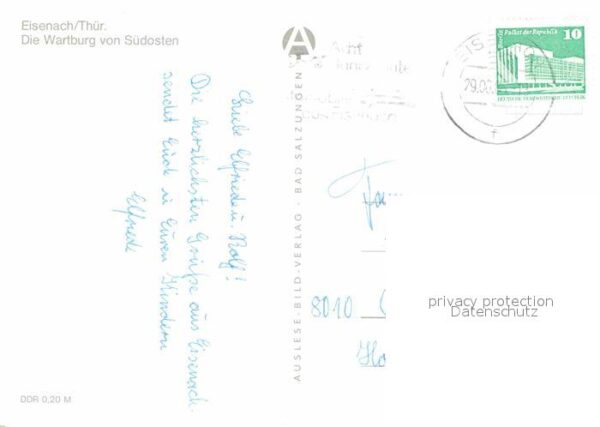 Eisenach/Thür.
Die Wartburg von Südosten
Liebe Elfriede u. Rolf!
Die herzlichsten Grüße aus Eisenach
sendet Euch u. Euren Kindern
Elfriede
DDR 0,20 M
AUSLESE-BILD-VERLAG · BAD SALZUNGEN
A
Berlin Palast der Republik
10
DEUTSCHE DEMOKRATISCHE REPUBLIK
EISE
29.00
f
Fam.
8010
privacy protection
Datenschutz